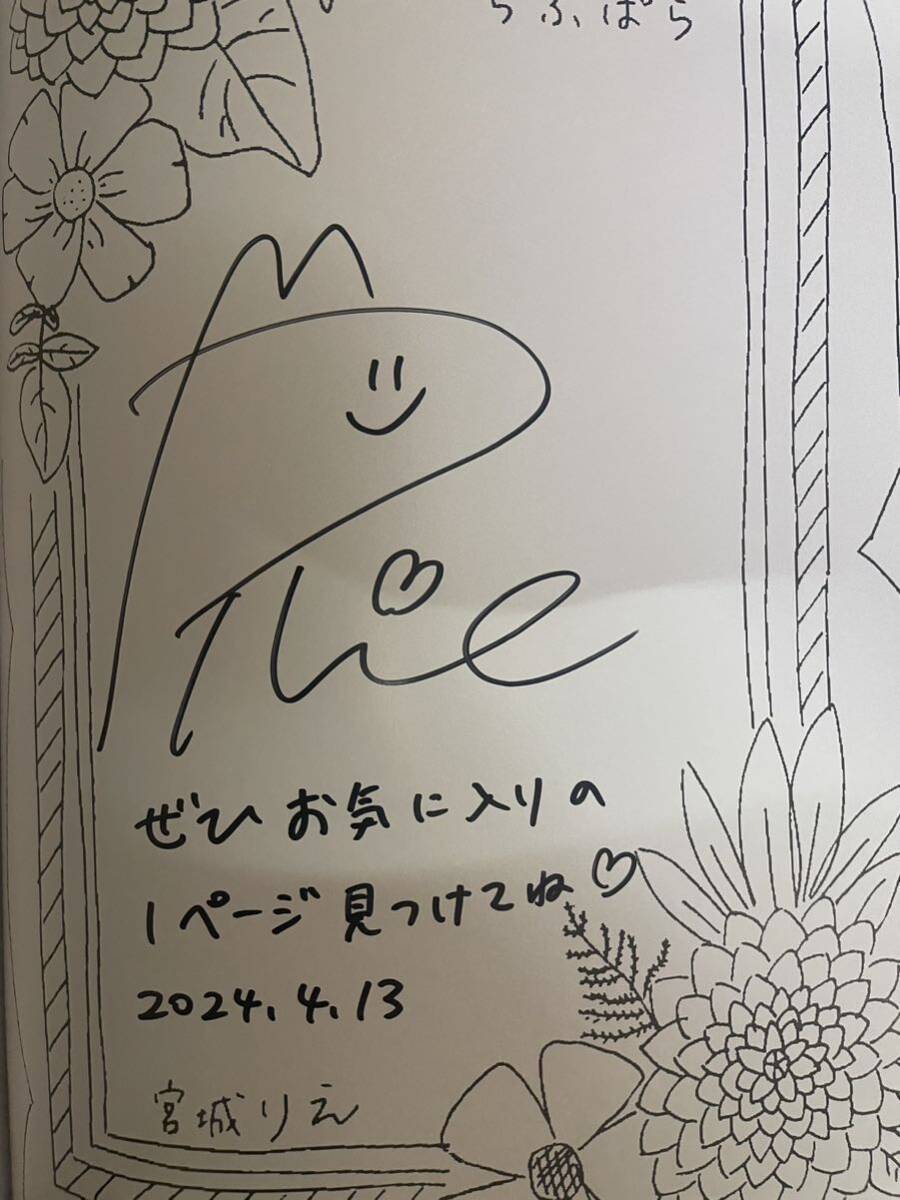 らふぱら
Rie
ぜひお気に入りの
1ページ見つけてね♡
2024.4.13
宮城りえ